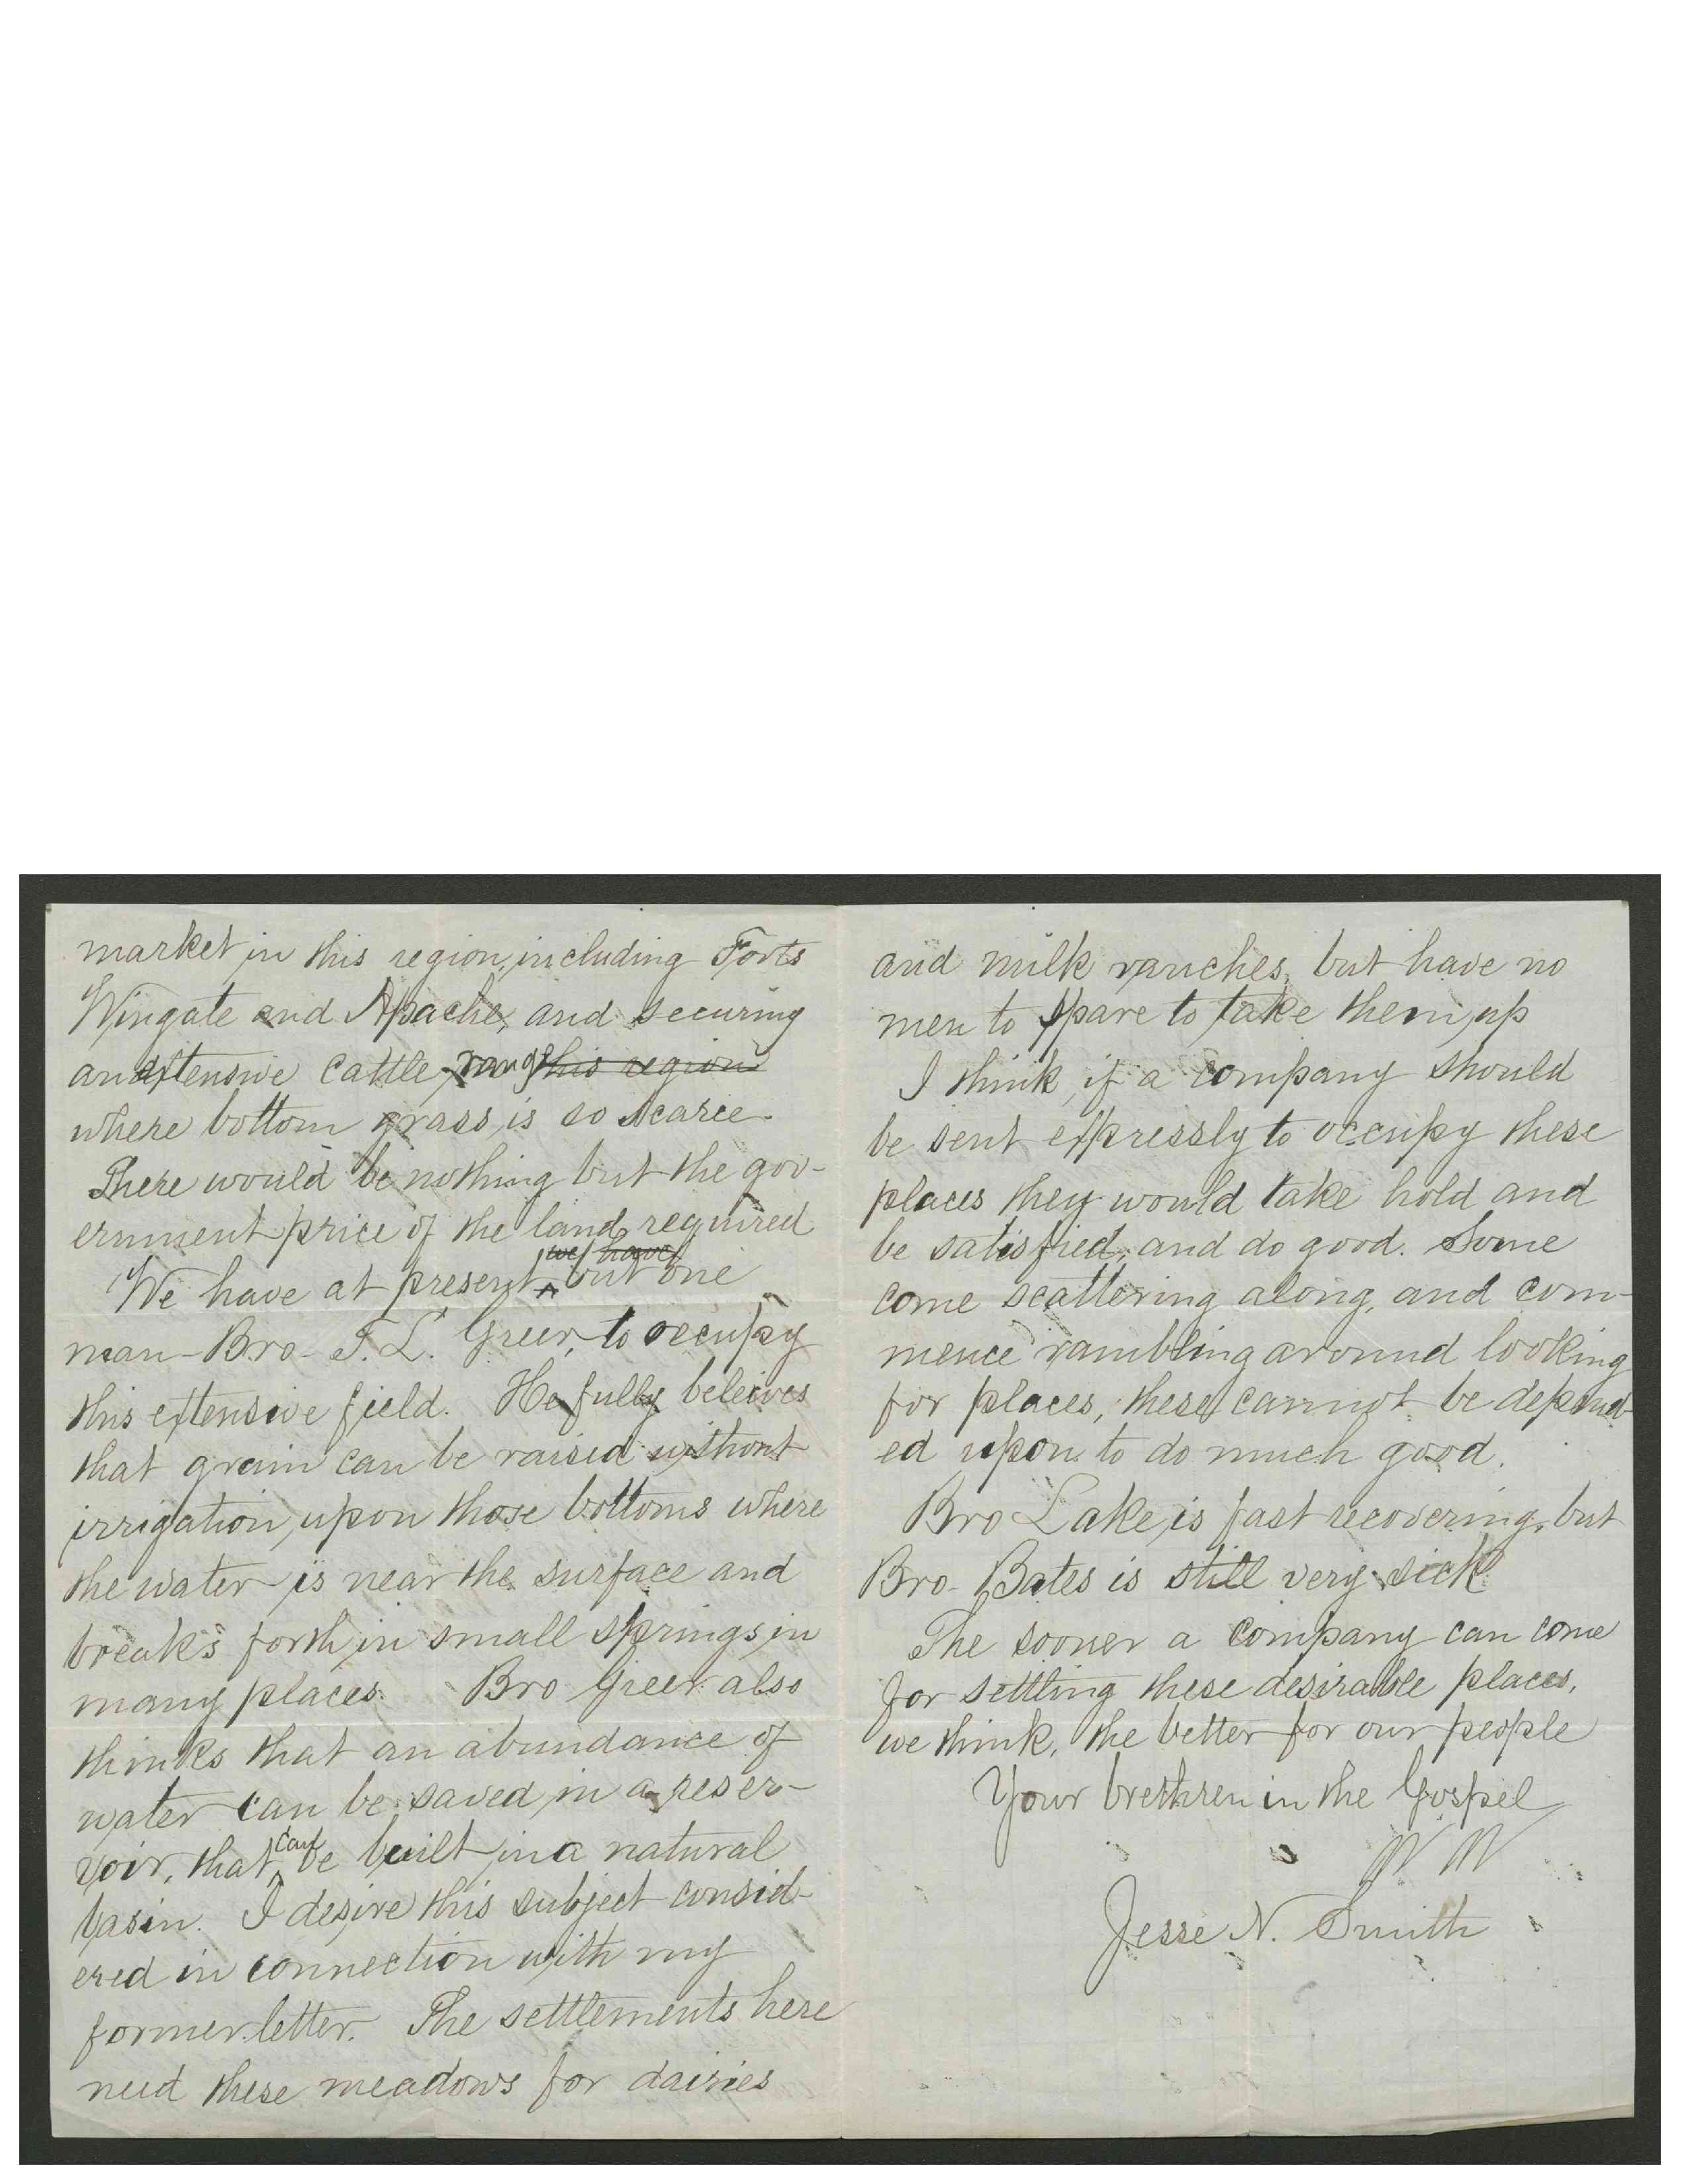 market in this region, including Forts
Wingate and Apache, and securing
an extensive cattle range this region
where bottom grass is so scarce.
There would be nothing but the gov-
ernment price of the land required
we have
We have at present but one
man - Bro - T. L. Greer, to occupy
this extensive field. He fully beleives
that grain can be raised without
irrigation, upon those bottoms where
the water is near the surface and
breaks forth in small springs in
many places. Bro Greer also
thinks that an abundance of
water can be saved in a reser-
voir, that can be built in a natural
basin. I desire this subject consid-
ered in connection with my
former letter. The settlements here
need these meadows for dairies
and milk ranches, but have no
men to spare to take them up
I think, if a company should
be sent expressly to occupy these
places they would take hold and
be satisfied, and do good. Some
come scattering along, and com-
mence rambling around looking
for places, these cannot be depend-
ed upon to do much good.
Bro Lake, is fast recovering, but
Bro - Bates is still very sick
The sooner a company can come
for settling these desirable places,
we think, the better for our people
Your brethren in the Gospel
Jesse N. Smith